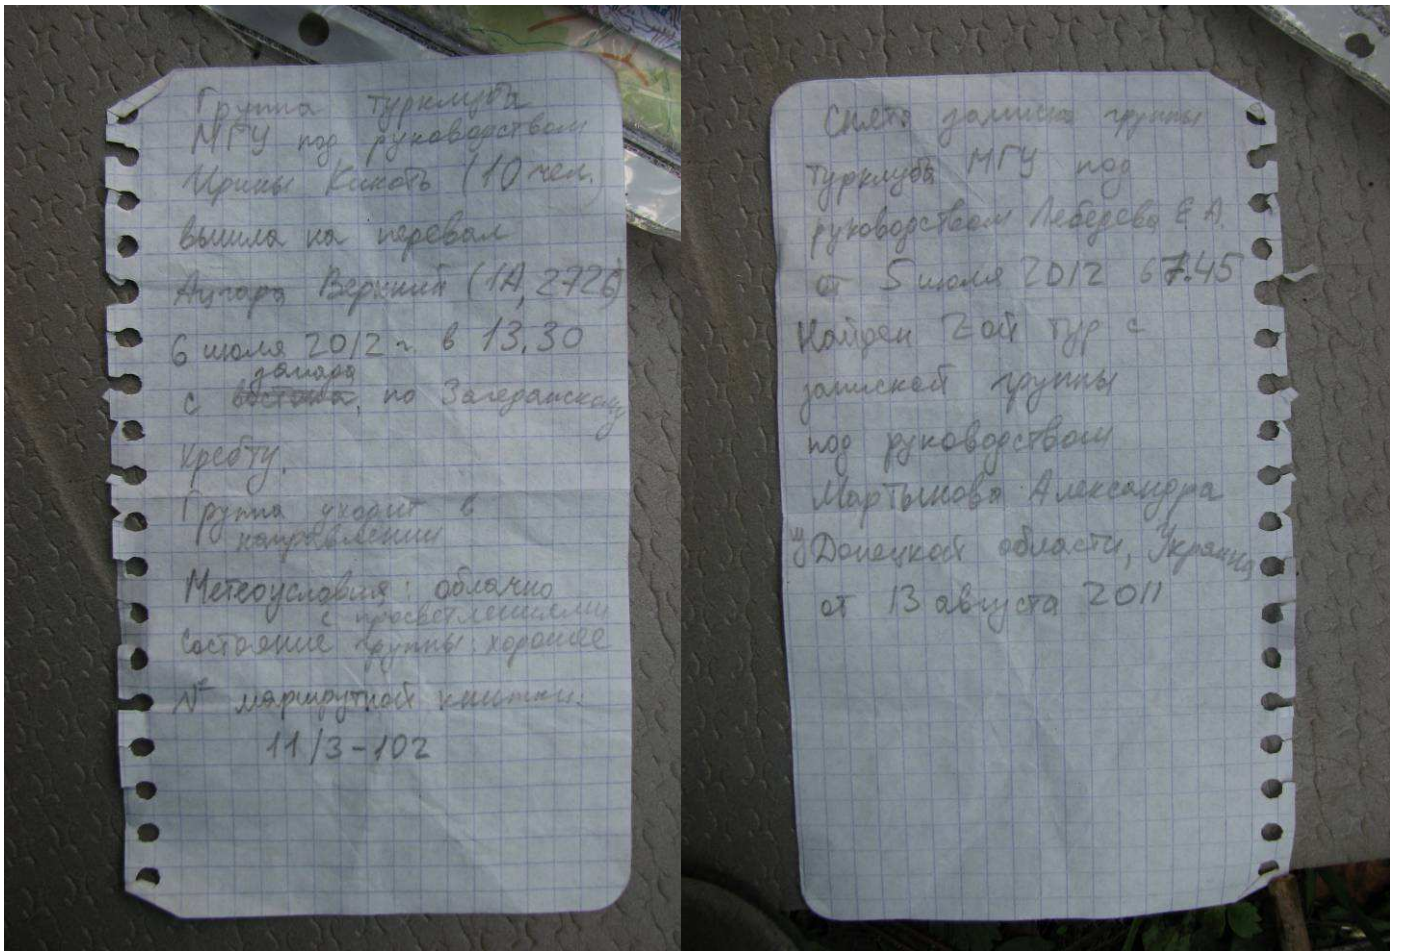 Группа турклуба
МГУ под руководством
Ирины Кикоть (10 чел.)
вышла на перевал
Ацгара Верхний (1А, 2726)
6 июля 2012 г. в 13.30
запада
с востока, по Загеданскому
хребту.
Группа уходит в
направлении
Метеоусловия: облачно
с просветлениями
Состояние группы: хорошее
№ маршрутной книжки:
11/3-102
Снята записка группы
турклуба МГУ под
руководством Лебедева Е.А.
от 5 июля 2012 в 7.45
Найден 2ой тур с
запиской группы
под руководством
Мартынова Александра
из Донецкой области, Украина
от 13 августа 2011